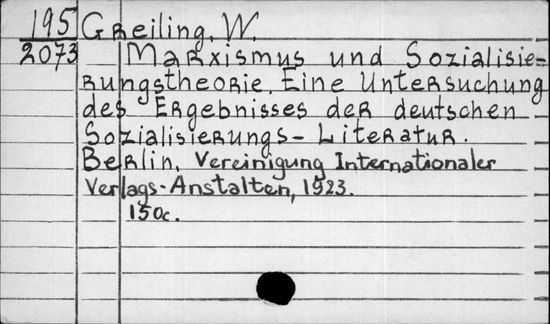 195 Greiling, W.
2073 Marxismus und Sozialisie-
rungstheorie. Eine Untersuchung
des Ergebnisses der deutschen
Sozialisierungs-Literatur.
Berlin, Vereinigung Internationaler
Verlags-Anstalten, 1923.
150c.